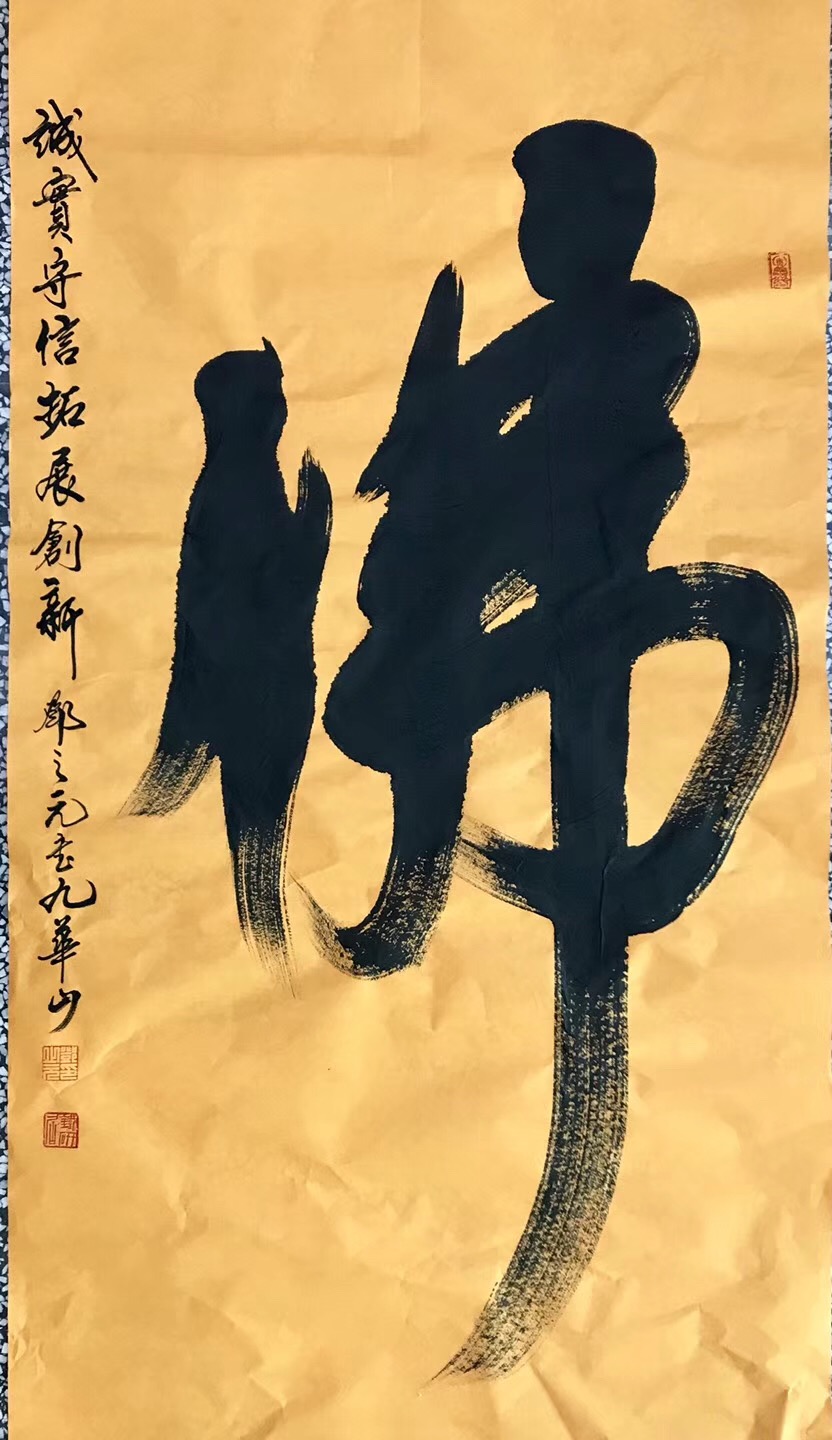 佛
誠實守信拓展創新 鄧之元書九華山